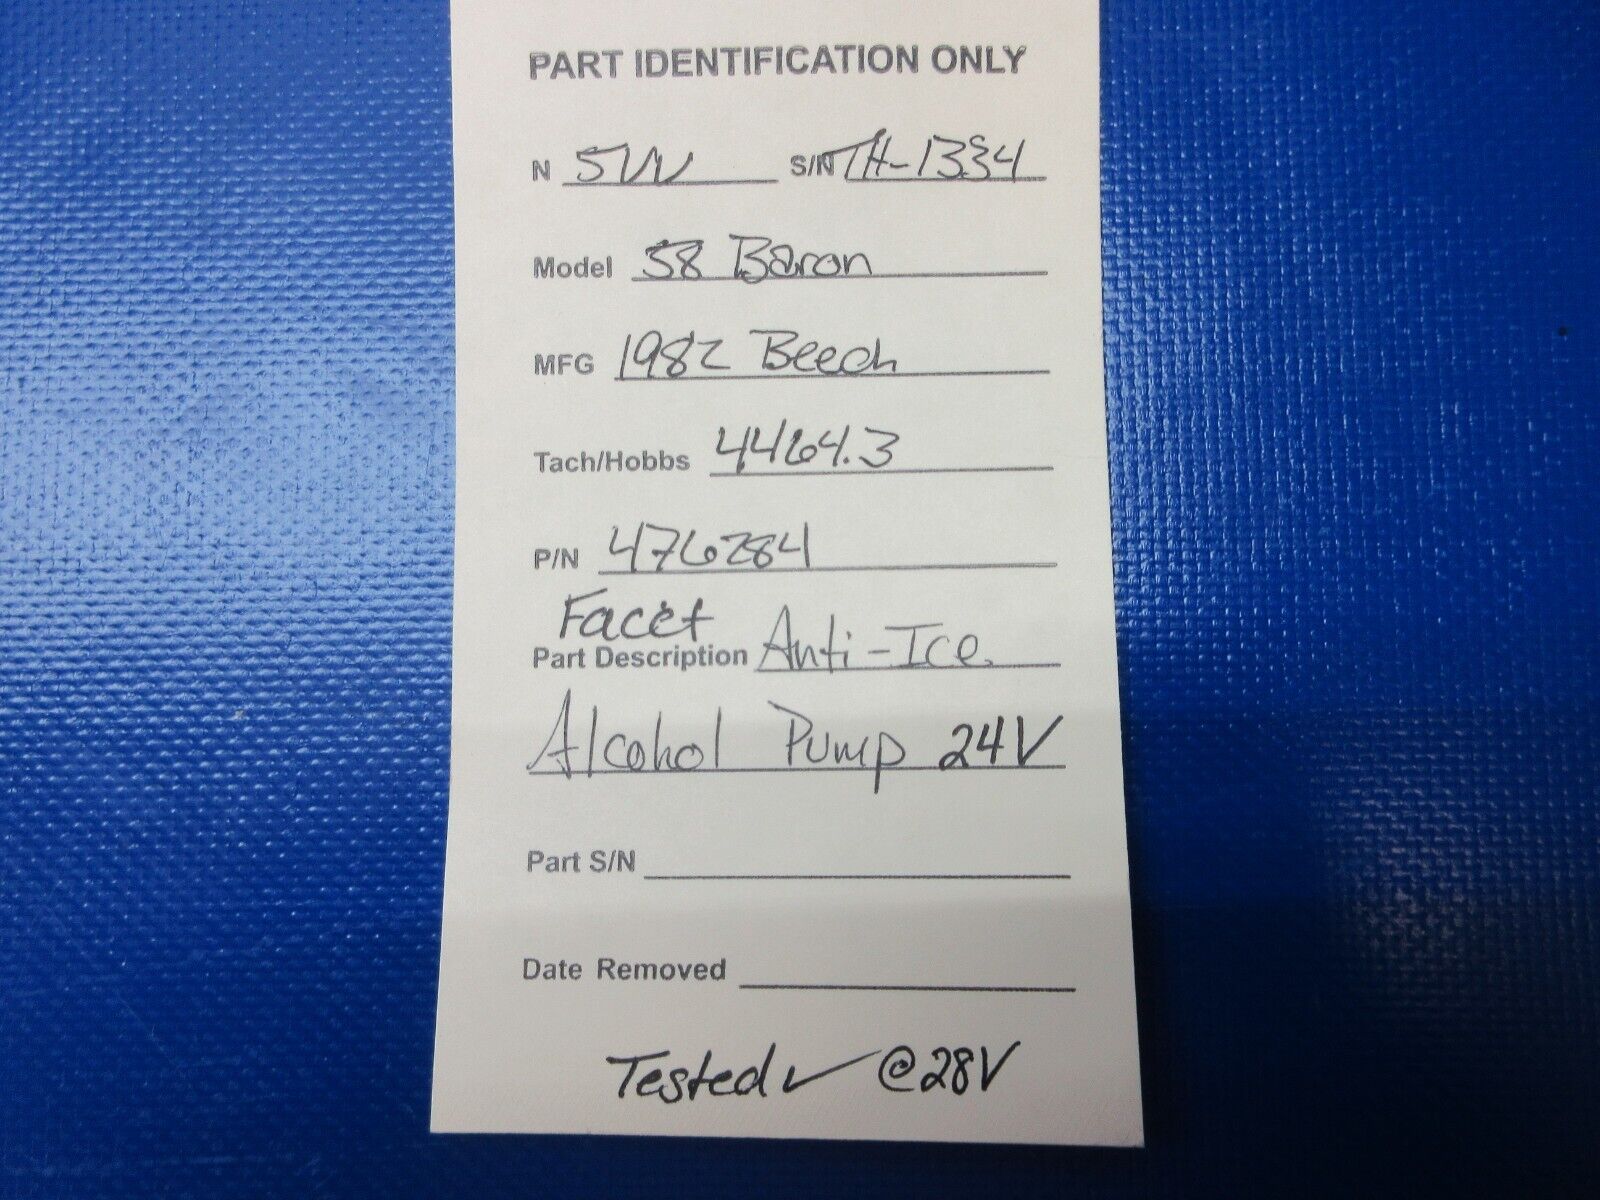 PART IDENTIFICATION ONLY
N 5VV S/N TH-1334
Model 58 Baron
MFG 1982 Beech
Tach/Hobbs 4464.3
P/N 476284
Facet
Part Description Anti-Ice
Alcohol Pump 24V
Part S/N
Date Removed
Tested ✓ @28V